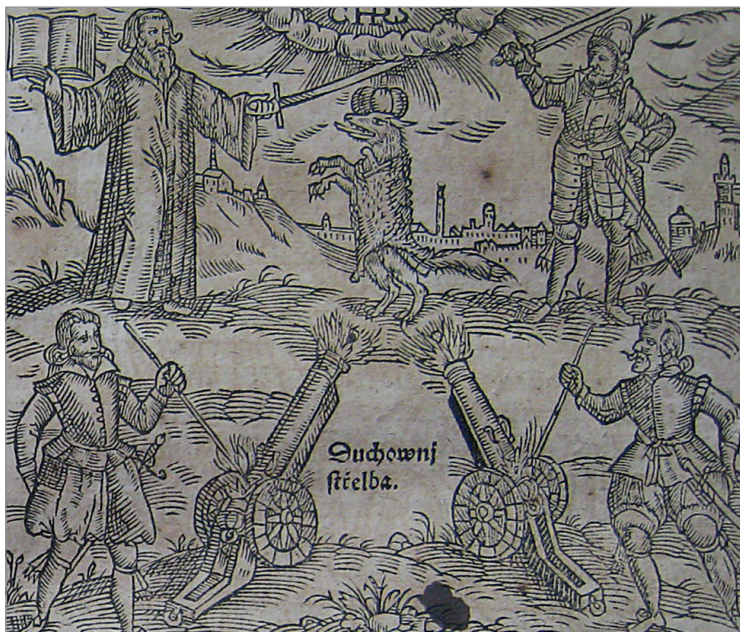 CHRS
Duchownj
střelba.